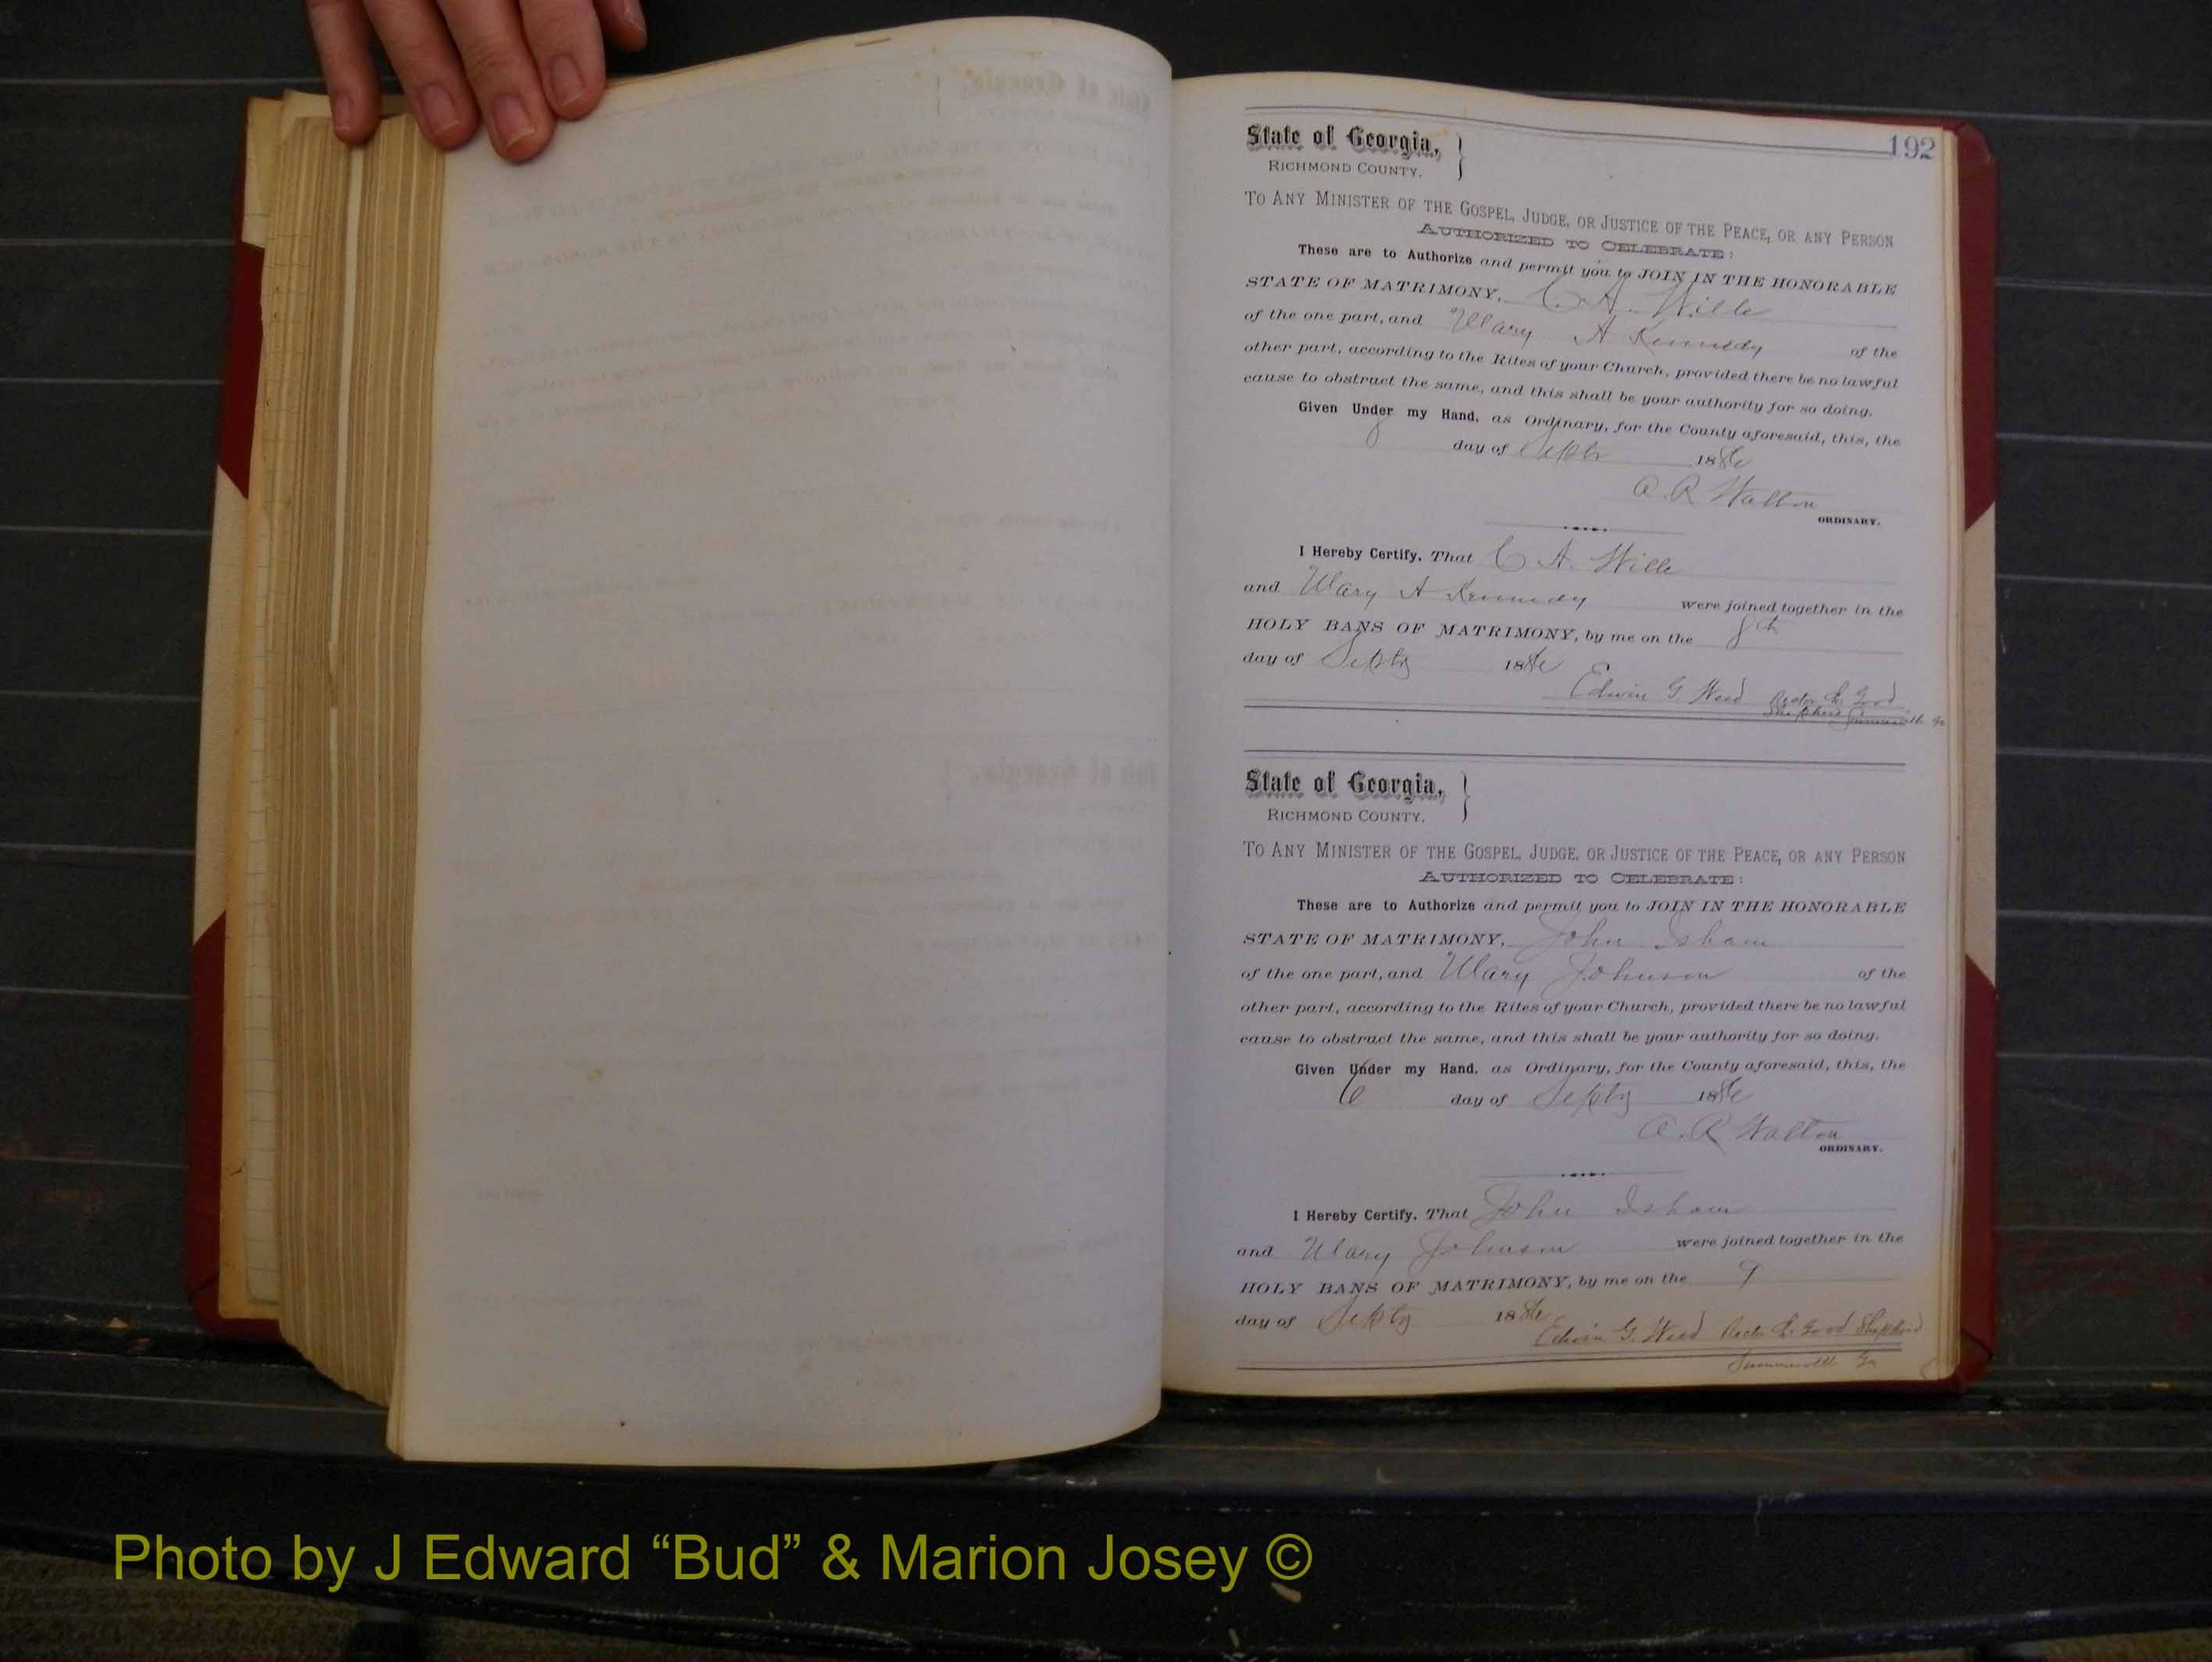 192
State of Georgia, }
RICHMOND COUNTY.
TO ANY MINISTER OF THE GOSPEL, JUDGE, OR JUSTICE OF THE PEACE, OR ANY PERSON
AUTHORIZED TO CELEBRATE:
These are to Authorize and permit you to JOIN IN THE HONORABLE
STATE OF MATRIMONY, C A. Wille
of the one part, and Mary A Kennedy of the
other part, according to the Rites of your Church, provided there be no lawful
cause to obstruct the same, and this shall be your authority for so doing.
Given Under my Hand, as Ordinary, for the County aforesaid, this, the
8 day of Septr 1886
A. R Walton
ORDINARY.
I Hereby Certify, That C A. Wille
and Mary A Kennedy were joined together in the
HOLY BANS OF MATRIMONY, by me on the 8th
day of Septr 1886
Edwin G. Weed Rector Ch. Good
Shepherd Summerville Ga
State of Georgia, }
RICHMOND COUNTY.
TO ANY MINISTER OF THE GOSPEL, JUDGE, OR JUSTICE OF THE PEACE, OR ANY PERSON
AUTHORIZED TO CELEBRATE:
These are to Authorize and permit you to JOIN IN THE HONORABLE
STATE OF MATRIMONY, John Isham
of the one part, and Mary Johnson of the
other part, according to the Rites of your Church, provided there be no lawful
cause to obstruct the same, and this shall be your authority for so doing.
Given Under my Hand, as Ordinary, for the County aforesaid, this, the
6 day of Septr 1886
A. R Walton
ORDINARY.
I Hereby Certify, That John Isham
and Mary Johnson were joined together in the
HOLY BANS OF MATRIMONY, by me on the 9
day of Septr 1886
Edwin G. Weed Rector Ch. Good Shepherd
Summerville Ga
Photo by J Edward “Bud” & Marion Josey ©